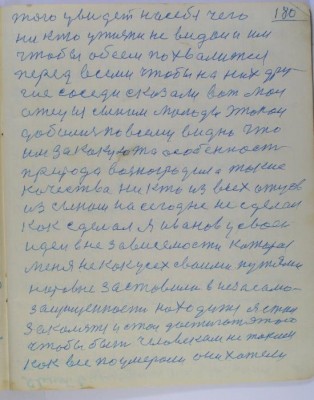 того увидет насебя чего 180
ни кто ужизни не видал и им
чтобы обоем похвалится
перед всеми чтобы на них дру-
гие соседи сказали вот мол
отец и сыном молодец этакои
добился повсему видно что
им закакуюта особенност
природа возногродила такие
качества ни кто из всех отцов
из сынам на сегодне не сделал
как сделал я Иванов у свои
идеи вне зависемости которая
меня не как усех своими путями
заставила в незасло-
защищенности находится я стал
закалятся и стал достигат этого
чтобы быть человекам не таким
как все поумерали они хотели